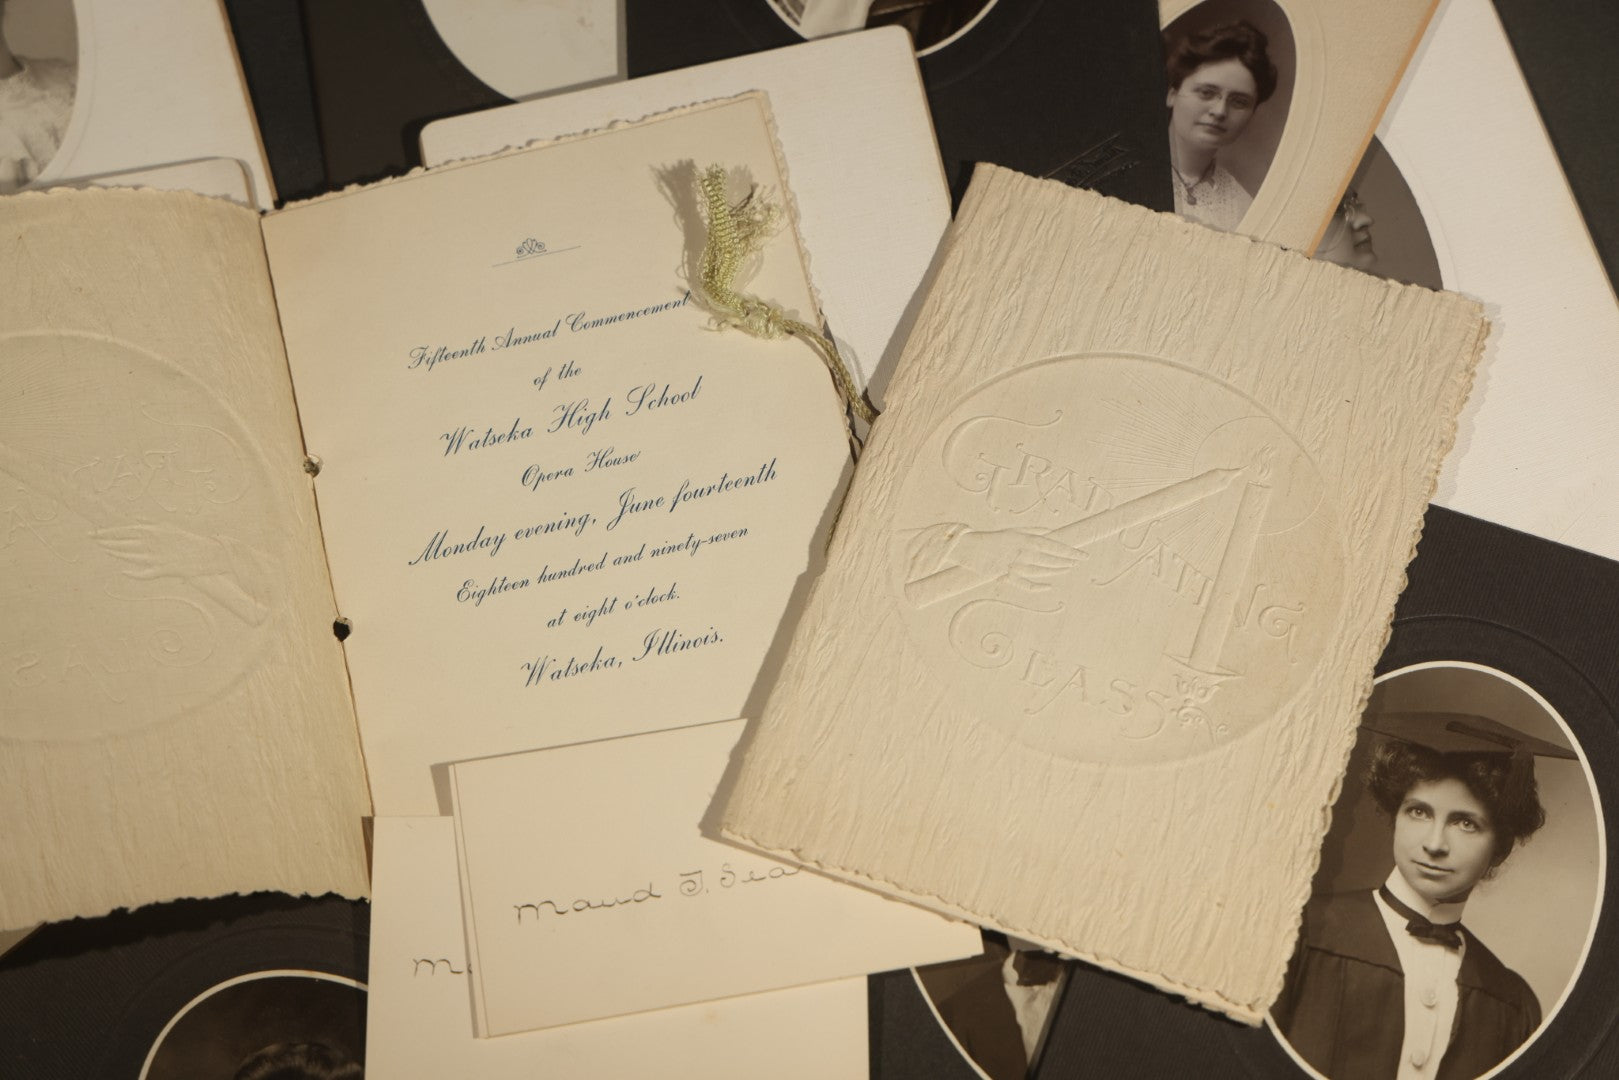 Fifteenth Annual Commencement
of the
Watseka High School
Opera House
Monday evening, June fourteenth
Eighteen hundred and ninety-seven
at eight o'clock.
Watseka, Illinois.
GRADUATING
CLASS
Maud J. Sea
M